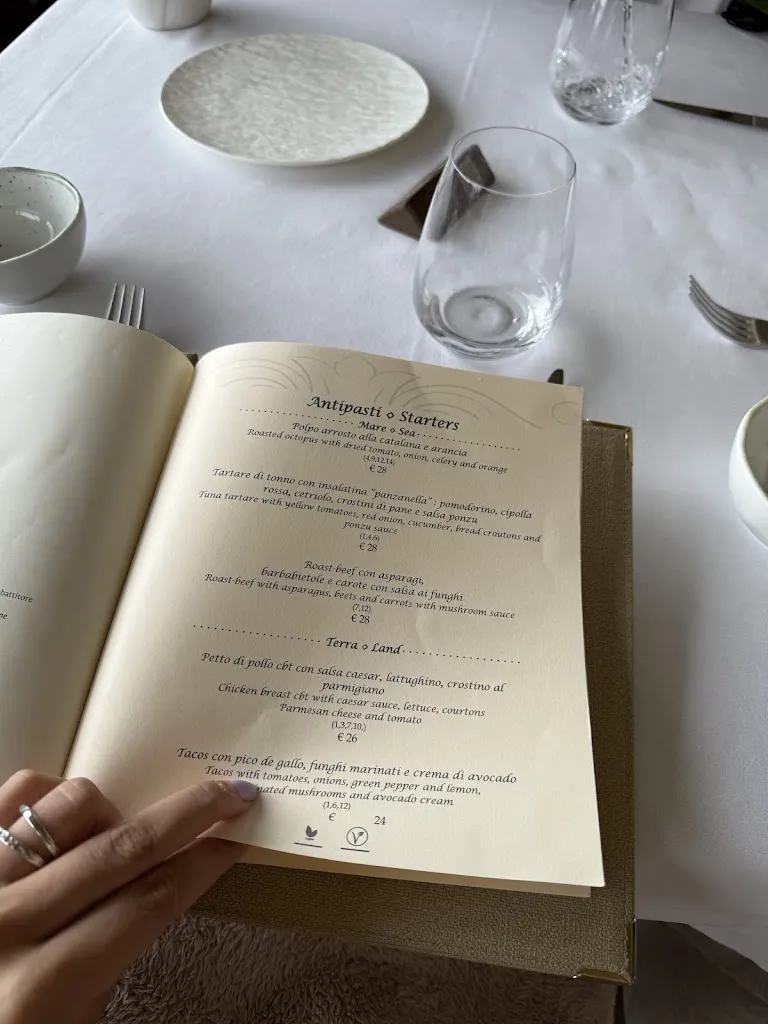 battitore
Antipasti ⋄ Starters
Mare ⋄ Sea
Polpo arrosto alla catalana e arancia
Roasted octopus with dried tomato, onion, celery and orange
(4,9,12,14)
€ 28
Tartare di tonno con insalatina "panzanella" : pomodorino, cipolla
rossa, cetriolo, crostini di pane e salsa ponzu
Tuna tartare with yellow tomatoes, red onion, cucumber, bread croutons and
ponzu sauce
(1,4,6)
€ 28
Roast-beef con asparagi,
barbabietole e carote con salsa ai funghi
Roast-beef with asparagus, beets and carrots with mushroom sauce
(7,12)
€ 28
Terra ⋄ Land
Petto di pollo cbt con salsa caesar, lattughino, crostino al
parmigiano
Chicken breast cbt with caesar sauce, lettuce, courtons
Parmesan cheese and tomato
(1,3,7,10,)
€ 26
Tacos con pico de gallo, funghi marinati e crema di avocado
Tacos with tomatoes, onions, green pepper and lemon,
nated mushrooms and avocado cream
(1,6,12)
€ 24
V